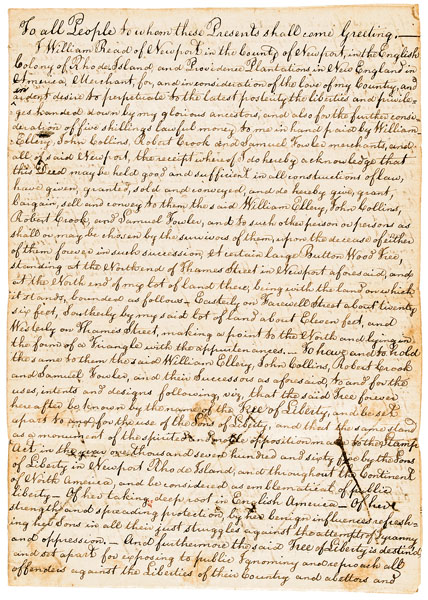 To all People to whom these Presents shall come Greeting. —
I William Read of Newport in the County of Newport, in the English
Colony of Rhode Island and Providence Plantations in New England in
America, Merchant, for, and in consideration of the love of my Country, and
an ardent desire to perpetuate to the latest posterity the liberties and privile-
ges handed down by my glorious ancestors, and also for the further consid-
eration of five shillings lawful money to me in hand paid by William
Ellery, John Collins, Robert Crook and Samuel Fowler merchants, and
all of said Newport, the receipt where of I do hereby acknowledge that
this Deed may be held good and sufficient in all constructions of law,
have given, granted, sold and conveyed, and do hereby give, grant,
bargain, sell and convey to them the said William Ellery, John Collins,
Robert Crook, and Samuel Fowler, and to such other person or persons as
shall or may be chosen by the survivors of them, upon the decease of either
of them forever in such succession, a certain large Button Wood Tree,
standing at the North end of Thames Street in Newport aforesaid, and
at the North end of my lot of land there, being with the land on which
it stands, bounded as follows — Easterly on Farewell Street about twenty
six feet, Southerly by my said lot of land about Eleven feet, and
Westerly on Thames Street, making a point to the North and lying in
the form of a Triangle with the appurtenances. — To have and to hold
the same to them the said William Ellery, John Collins, Robert Crook
and Samuel Fowler, and their Successors as aforesaid, to and for the
uses, intents and designs following, viz, that the said Tree forever
here after be known by the name of the Tree of Liberty, and be set
apart to and for the use of the Sons of Liberty, and that the same stand
as a monument of the spirited and noble opposition made to the Stamp
Act in the year one thousand seven hundred and sixty five by the Sons
of Liberty in Newport Rhode Island, and throughout the Continent
of North America, and be considered as emblematical of public
Liberty — Of her taking deep root in English America — Of her
strength and spreading protection, by her benign influences refresh-
ing her Sons in all their just struggles against the attempts of Tyranny
and oppression. — And furthermore the said Tree of Liberty is destined
and set apart for exposing to public ignominy and reproach all
offenders against the Liberties of their Country and abettors and